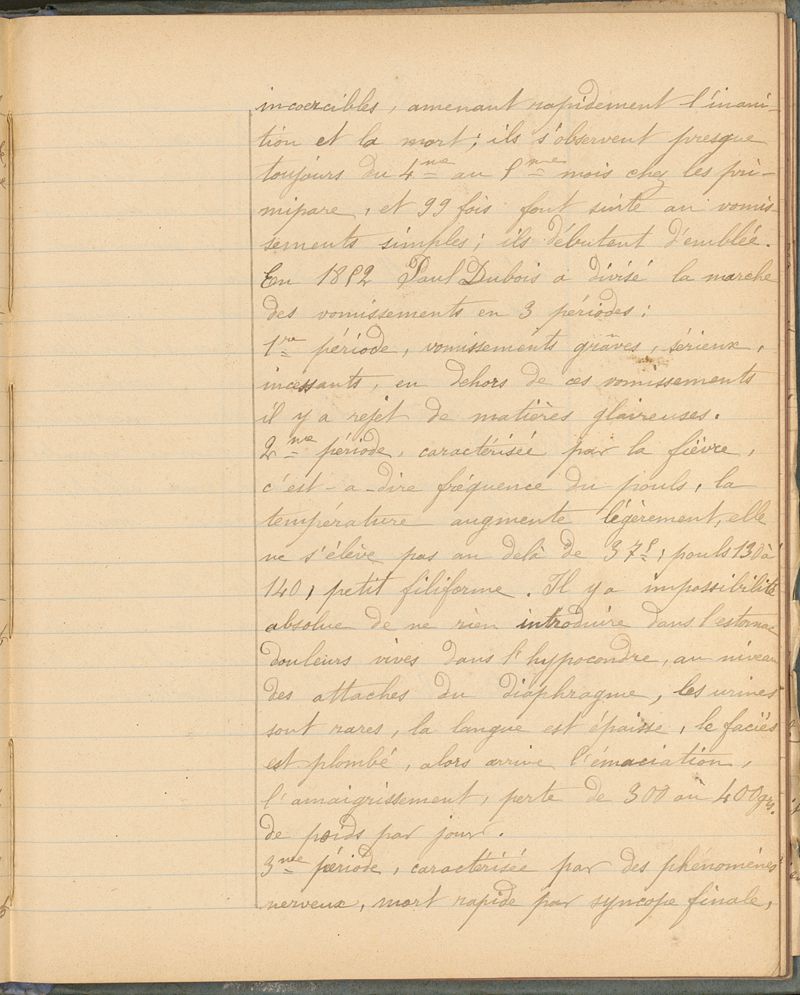 incoercibles, amenant rapidement l'inani-
tion et la mort; ils s'observent presque
toujours du 4me au 5me mois chez les pri-
mipare, et 99 fois font suite au vomis-
sements simples; ils débutent d'emblée.
En 1852 Paul Dubois a divisé la marche
des vomissements en 3 périodes:
1re période, vomissements graves, sérieux,
incessants, en dehors de ces vomissements
il y a rejet de matières glaireuses.
2me période, caractérisée par la fièvre,
c'est-a-dire fréquence du pouls, la
température augmente légèrement, elle
ne s'élève pas au delà de 37°5, pouls 130 à
140, petit filiforme. Il y a impossibilité
absolue de ne rien introduire dans l'estomac
douleurs vives dans l'hypocondre, au niveau
des attaches du diaphragme, les urines
sont rares, la langue est épaisse, le faciès
est plombé, alors arrive l'émaciation,
l'amaigrissement, perte de 300 ou 400 grs.
de poids par jour.
3me période, caractérisée par des phénomènes
nerveux, mort rapide par syncope finale,